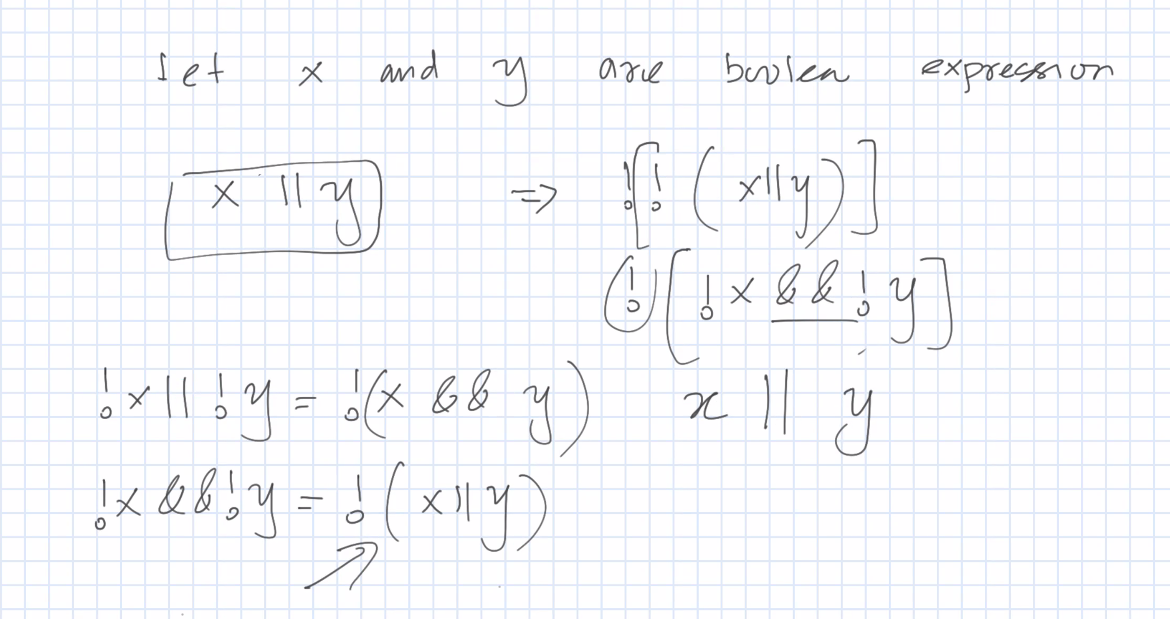 let x and y are boolen expression
x || y => ![!(x||y)]
![!x && !y]
!x || !y = !(x && y) x || y
!x && !y = !(x || y)